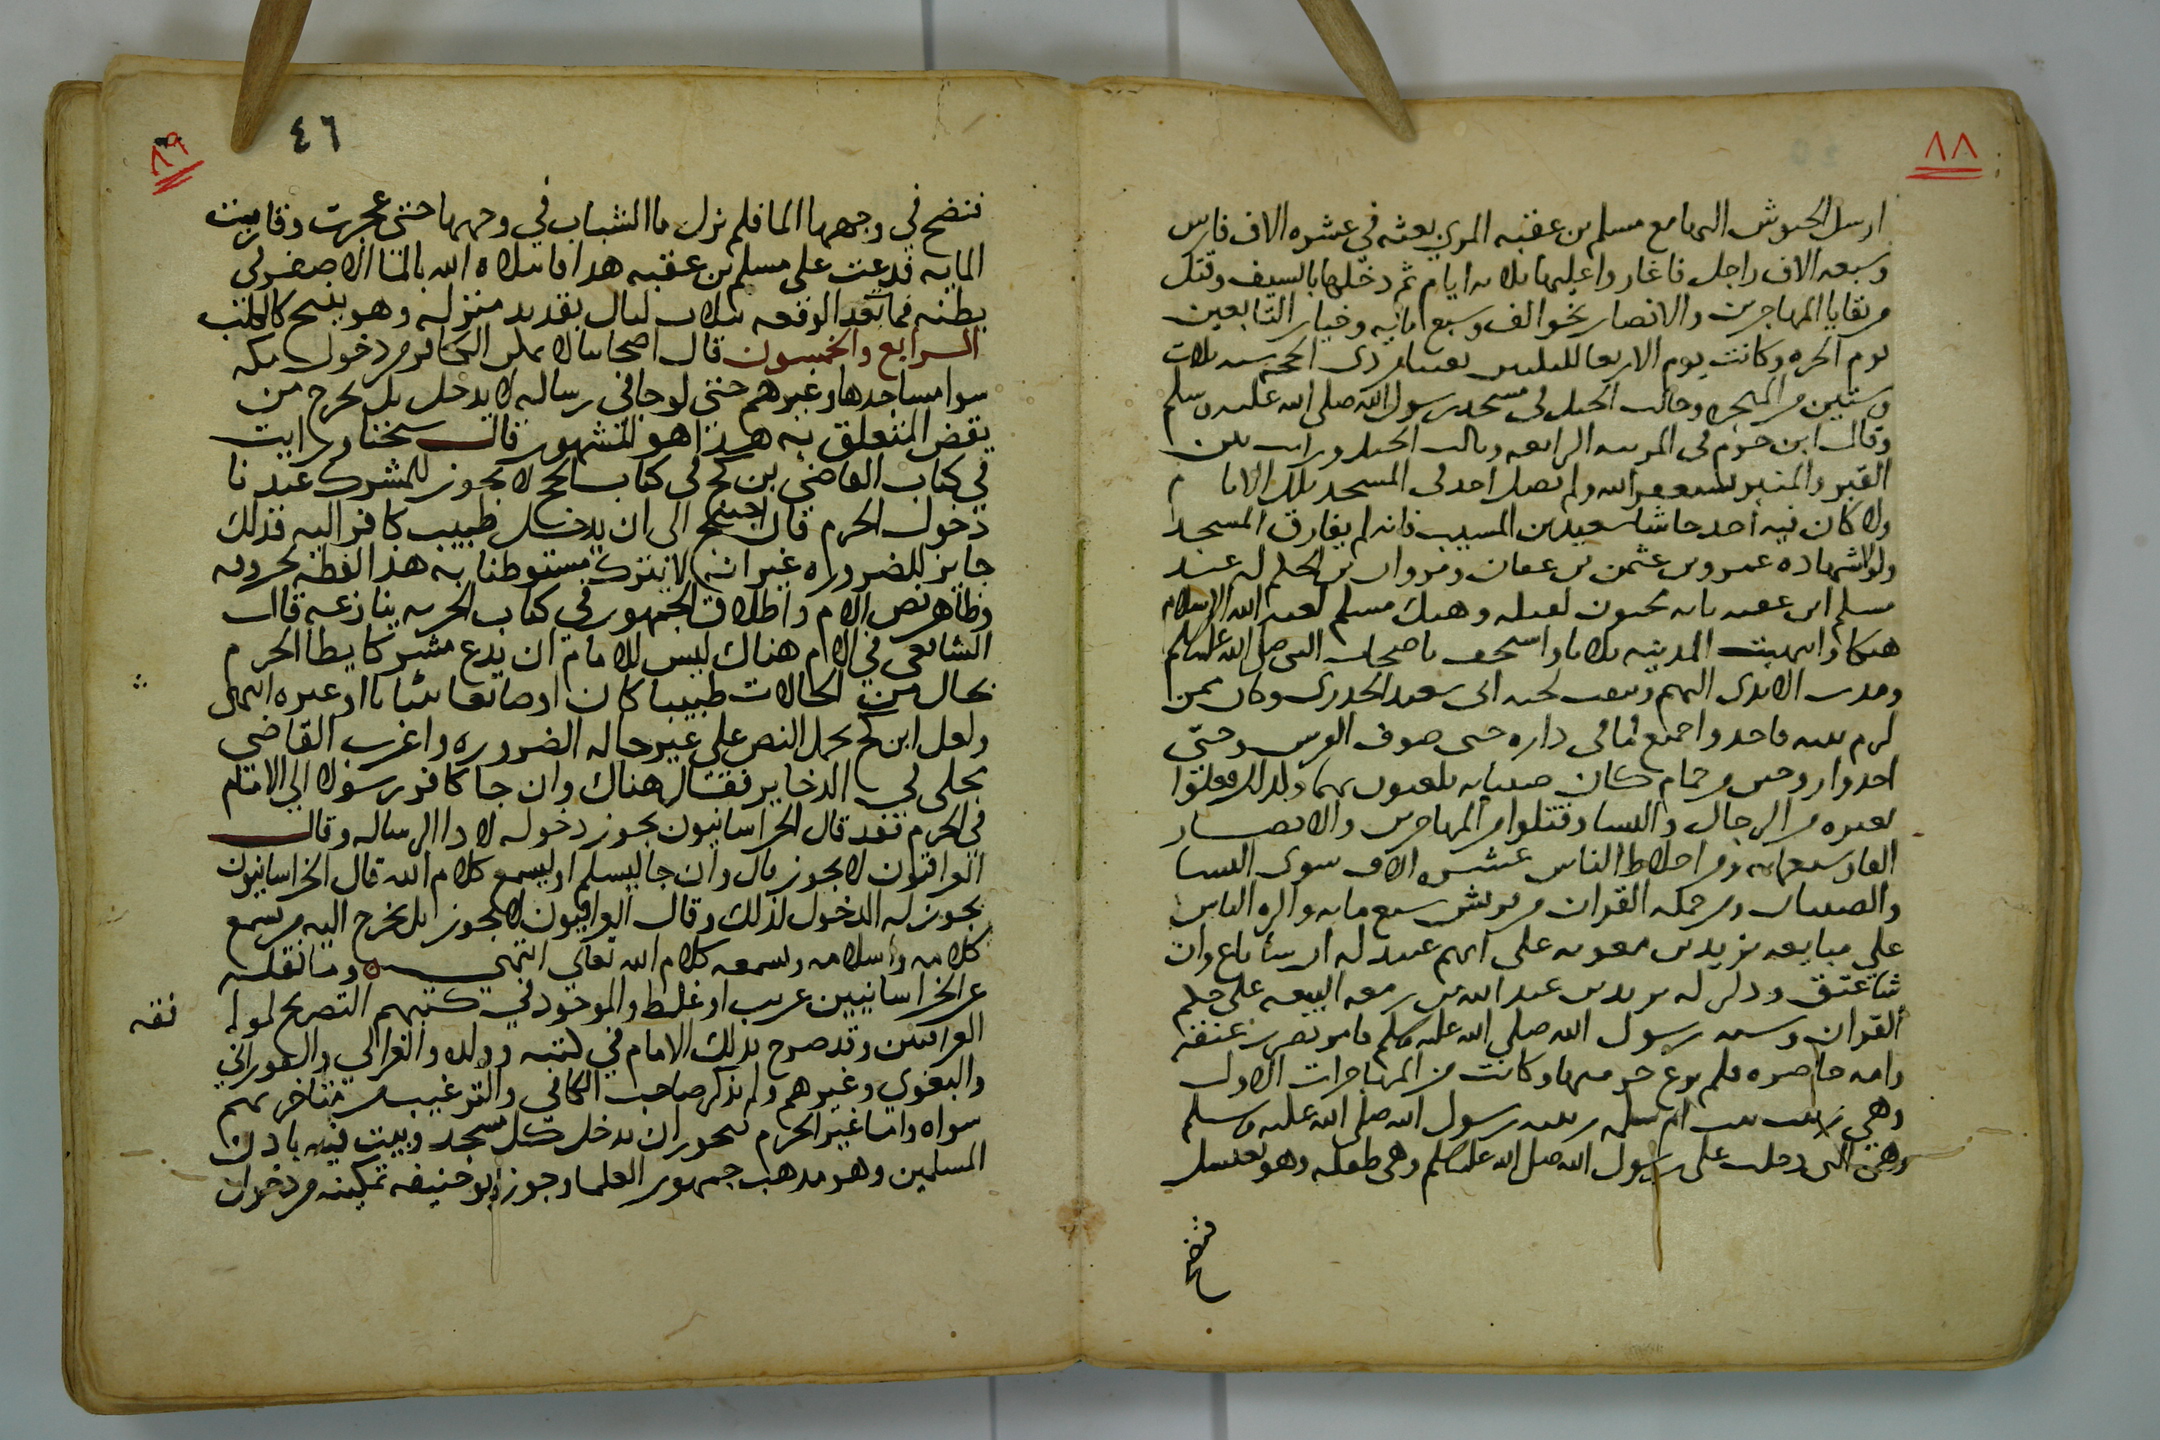 ٨٨
ارسل الجيوش اليها مع مسلم بن عقبه المري بعثه في عشره الاف فارس
وسبعه الاف راجل فاغاروا عليها ثلاثه ايام ثم دخلها بالسيف وقتل
من بقايا المهاجرين والانصار نحو الف وسبع مائيه وخيار التابعين
يوم الحره وكانت يوم الاربعا لليلتين بقيتا من ذى الحجه سنه ثلاث
وستين من الهجره وجالت الخيل فى مسجد رسول الله صلى الله عليه وسلم
وقال ابن حزم فى المرتبه الرابعه وبالت الخيل وراثت بين
القبر والمنبر ولم يصل احد فى المسجد تلك الايام
ولا كان فيه احد حاشا سعيد بن المسيب فانه لم يفارق المسجد
ولولا شهاده عمرو بن عثمن بن عفان ومروان بن الحكم له عند
مسلم ابن عقبه بانه مجنون لقتله وهتك مسلم لعنه الله الاسلام
هتكا وانهبت المدينه ثلاثا واستخف باصحاب النبي صلى الله عليه وسلم
ومدت الايدى اليهم ونتفت لحيه ابى سعيد الخدرى وكان ممن
لزم بيته فاخذوا جميع ما فى داره حتى صوف الفرش وحتى
اخذوا زوجين من حمام كان صبيانه يلعبون بهما وكذلك فعلوا
بغيره من الرجال والنسا وقتلوا من المهاجرين والانصار
الفا وسبعمايه ومن اخلاط الناس عشره الاف سوى النسا
والصبيان ومن حمله القران من قريش سبع مايه واكره الناس
على مبايعه يزيد بن معويه على انهم عبيد له ان شا باع وان
شا عتق وذكر له يزيد بن عبد الله بن زمعه البيعه على حكم
القران وسنه رسول الله صلى الله عليه وسلم فامر بضرب عنقه
وامه حاضره فلم يرع حرمتها وكانت من المهاجرات الاول
وهى زينب بنت ام سلمه ربيبه رسول الله صلى الله عليه وسلم
وهى التى دخلت على رسول الله صلى الله عليه وسلم وهى طفله وهو يغتسل
فنضح
٨٩
٤٦
فنضح في وجهها الما فلم يزل ما الشباب في وجهها حتى عجزت وقاربت
المايه فدعت على مسلم بن عقبه هذا فابتلاه الله بالما الاصفر فى
بطنه فمات بعد الوقعه بثلاث ليال بقديد منزله وهو ينبح كالكلب
الرابع والخمسون قال اصحابنا لا يمكن الكافر من دخول مكه
سوا مساجدها وغيرهم حتى لو جا في رساله لا يدخل بل يخرج من
يقضى المتعلق به هذا هو المشهور قال شيخنا ورايت
في كتاب القاضي بن كج فى كتاب الحج لا يجوز للمشرك عندنا
دخول الحرم قال احتيج الى ان يدخل طبيب كافر اليه فذلك
جايز للضروره غير انه لا يترك مستوطنا به هذا لفظه بحروفه
وظاهر نص الام واطلاق الجمهور في كتاب الجزيه ينازعه قال
الشافعي في الام هناك ليس للامام ان يدع مشركا يطا الحرم
بحال من الحالات طبيبا كان او صانعا بنيانا او غيره انتهى
ولعل ابن كج يحمل النص على غير حاله الضروره واغرب القاضي
مجلى في الذخاير فقال هناك وان جا كافر رسولا الي الامام
في الحرم فقد قال الخراسانيون يجوز دخوله لادا الرساله وقال
العراقيون لا يجوز قال وان جا ليسلم او ليسمع كلام الله قال الخراسانيون
يجوز له الدخول لذلك وقال العراقيون لا يجوز بل يخرج اليه من يسمع
كلامه واسلامه وسمعه كلام الله تعالي انتهي ه وما نقله
عن الخراسانيين غريب او غلط والموجود في كتبهم التصريح لموا
فقه
العراقيين وقد صرح بذلك الامام في كتبه وولده والغزالي والفوراني
والبغوي وغيرهم ولم يذكر صاحب الكافى والترغيب من متاخريهم
سواه واما غير الحرم فيجوز ان يدخل كل مسجد ويبيت فيه باذن
المسلمين وهو مذهب جمهور العلما وجوز ابو حنيفه تمكينه من دخول